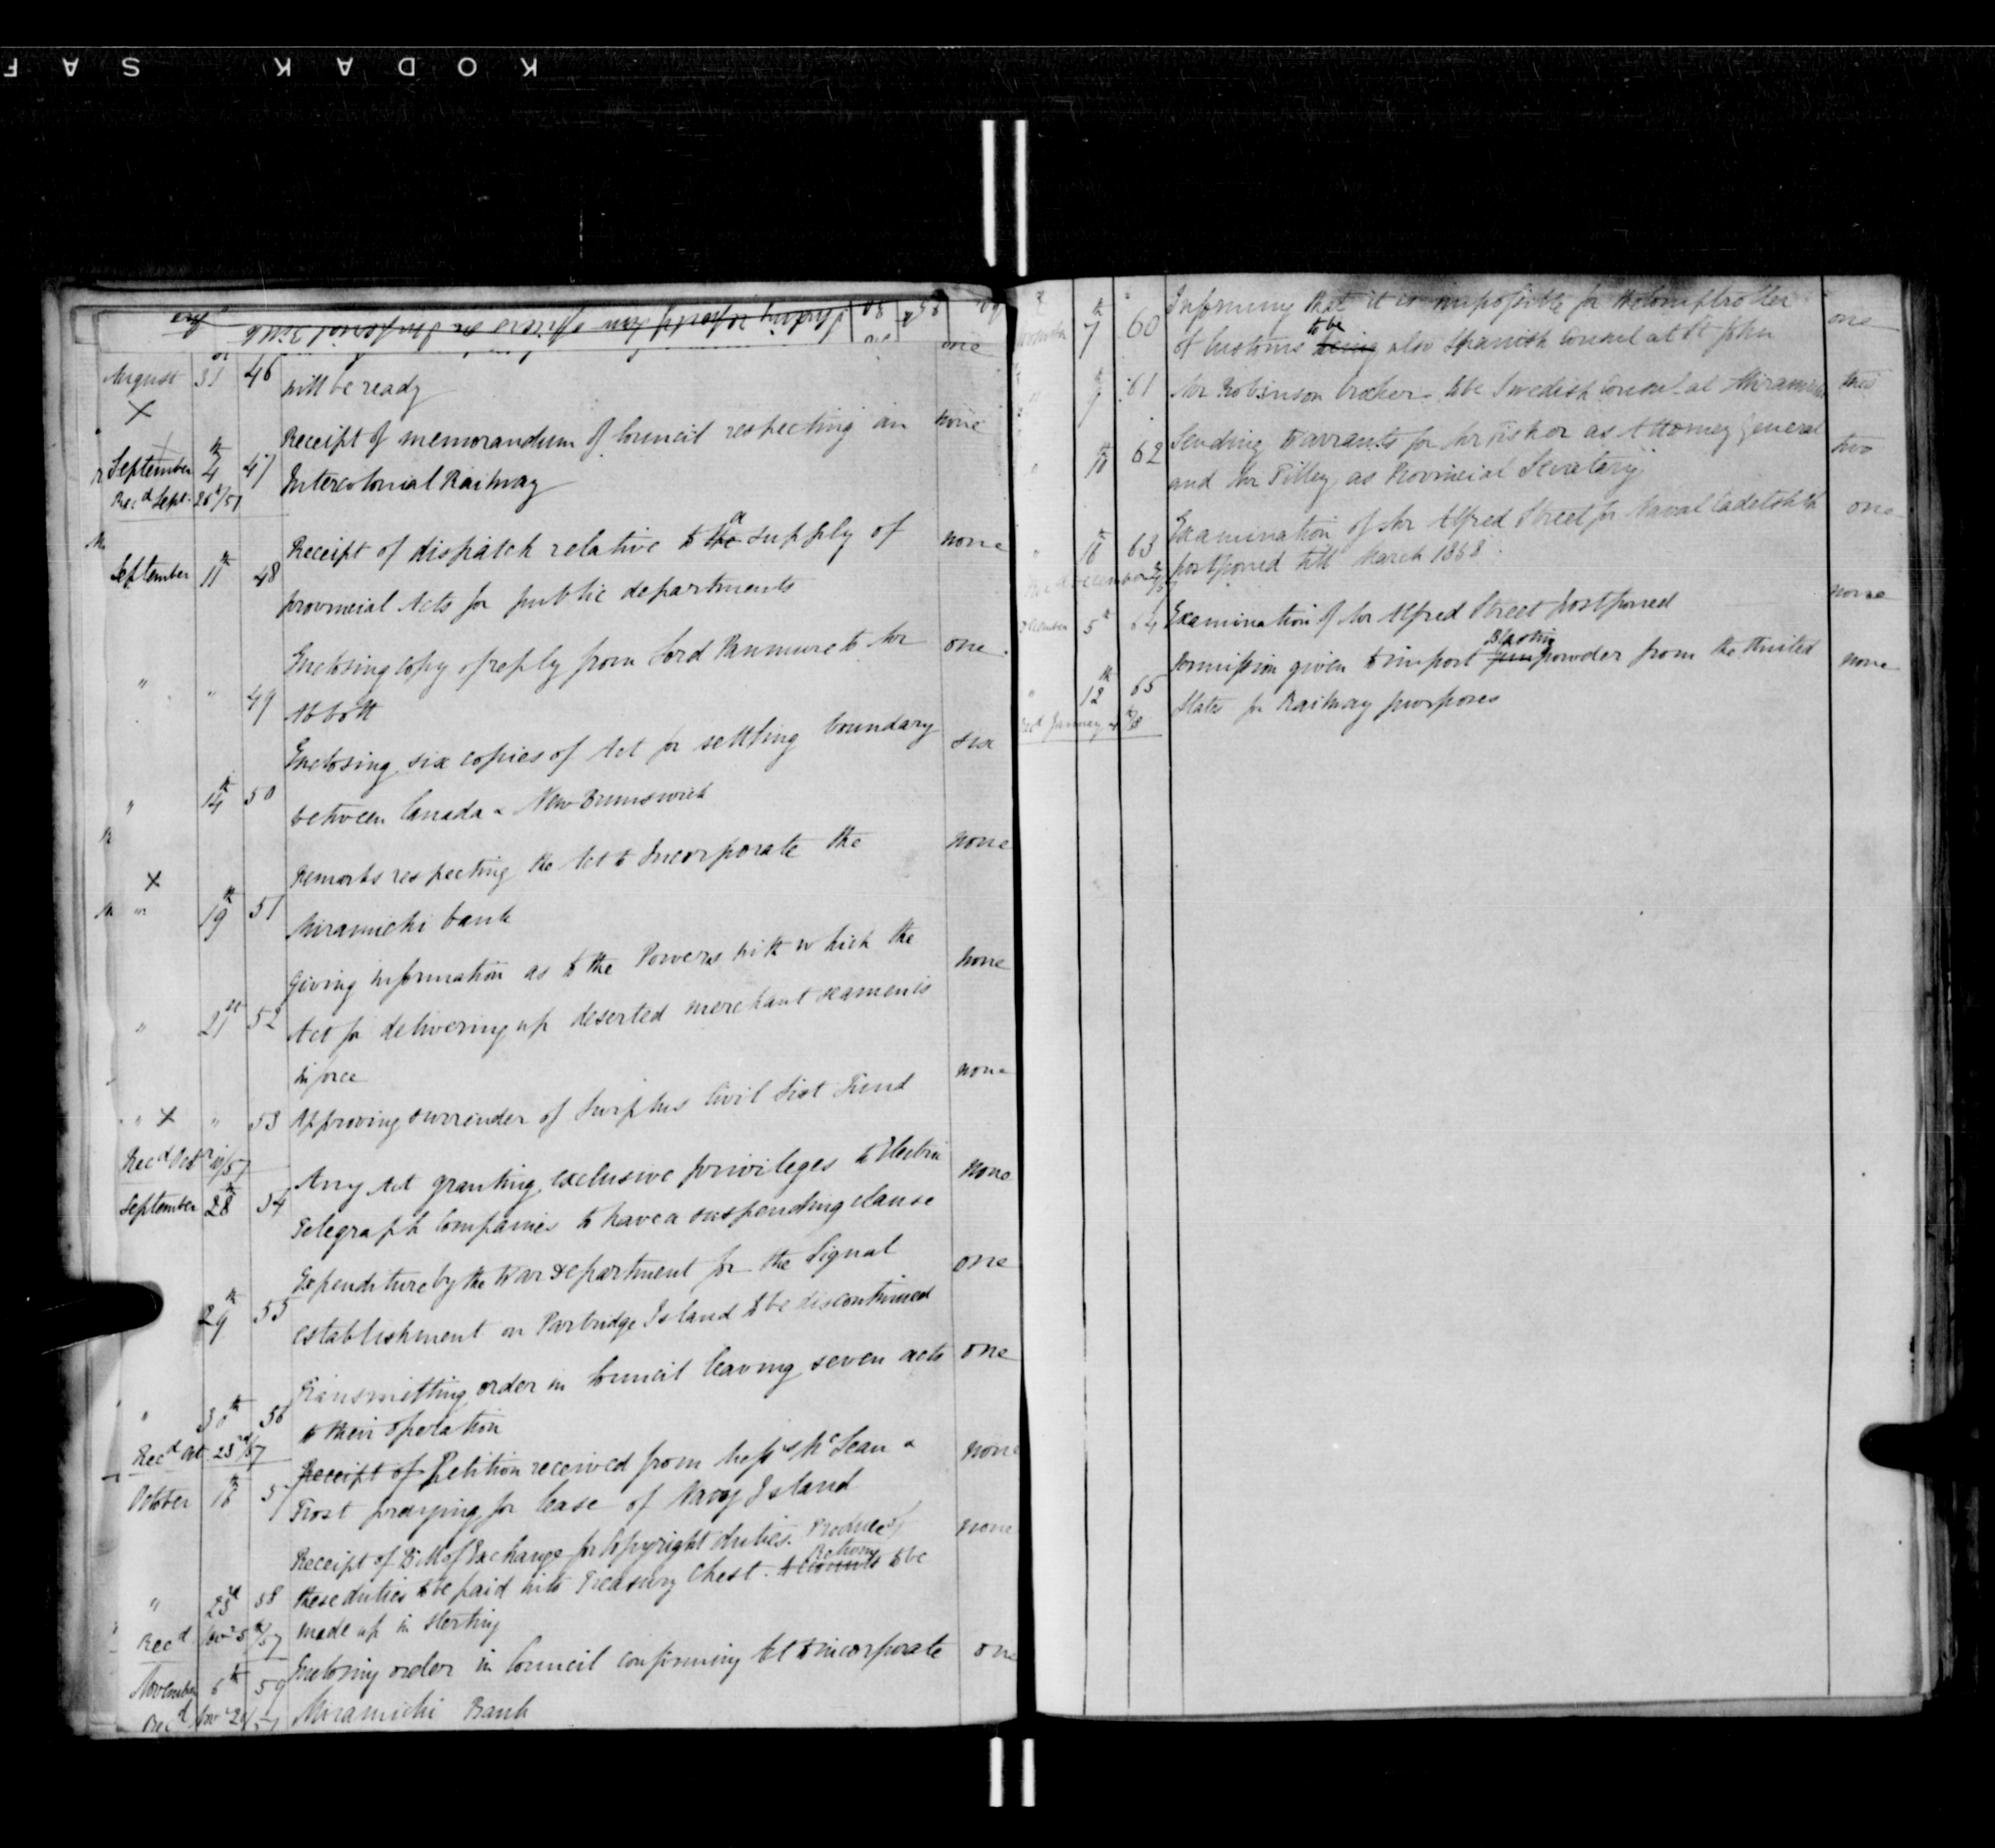 KODAK SAF
one
August 31st 46 will be ready
Receipt of memorandum of Council respecting an none
September 4th 47 Intercolonial Railway
Recd Sept.
Receipt of dispatch relative to the a supply of none
September 11th 48 provincial Acts for public departments
Enclosing copy of reply from Lord Panmure to Mr one.
" " 49 Abbott
Enclosing six copies of Act for settling boundary six
" 14th 50 between Canada & New Brunswick
Remarks respecting the Act to Incorporate the none
" 19th 51 Miramichi bank
Giving information as to the Powers with which the none
" 21st 52 Act for delivering up deserted merchant seamen is
in force none
" X " 53 Approving surrender of Surplus Civil List Fund
Recd Octr
September 28th 54 Any Act granting exclusive privileges to Electric none
Telegraph Companies to have a suspending clause
Expenditure by the War Department for the Signal one
29th 55 establishment on Partridge Island to be discontinued
Transmitting order in Council leaving seven acts one
" 30th 56 to their operation
Recd Oct 23rd/57
October 16th 57 Receipt of Petition received from Messrs McLean & none
Frost praying for lease of Navy Island
Receipt of Bill of Exchange for Copyright duties. Produce of none
" 23d 58 these duties to be paid into Treasury Chest. Accounts Returns to be
Recd Novr 5th/57 made up in sterling
November 6th 59 Enclosing order in Council confirming Act to incorporate one
Recd Novr 20/57 Miramichi Bank
7th 60 Informing that it is impossible for the Comptroller one
of Customs being to be also Spanish Consul at St John
" 9th 61 Mr Robinson Crocker to be Swedish Consul at Miramichi
" 10th 62 Sending Warrants for Mr Fisher as Attorney General two
and Mr Tilley as Provincial Secretary
" 16th 63 Examination of Mr Alfred Street for Naval Cadetship one
postponed till March 1858
December 5th 64 Examination of Mr Alfred Street postponed none
" 12th 65 Permission given to import gun Blasting powder from the United none
States for Railway purposes
Recd January